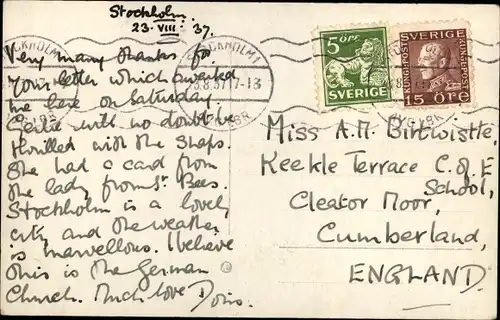 Stockholm.
23. VIII. 37.
Very many thanks for
your letter which awaited
me here on Saturday.
will no doubt be
thrilled with the snaps.
She had a card from
the lady from St. Bees.
Stockholm is a lovely
city and the weather
is marvellous. I believe
this is the German
Church. Much love Doris.
5 ÖRE
SVERIGE
SVERIGE
KUNGL.POST
KUNGL.POST
15 ÖRE
Miss A.M. Birtwistle,
Keekle Terrace C. of E
School,
Cleator Moor,
Cumberland,
ENGLAND.